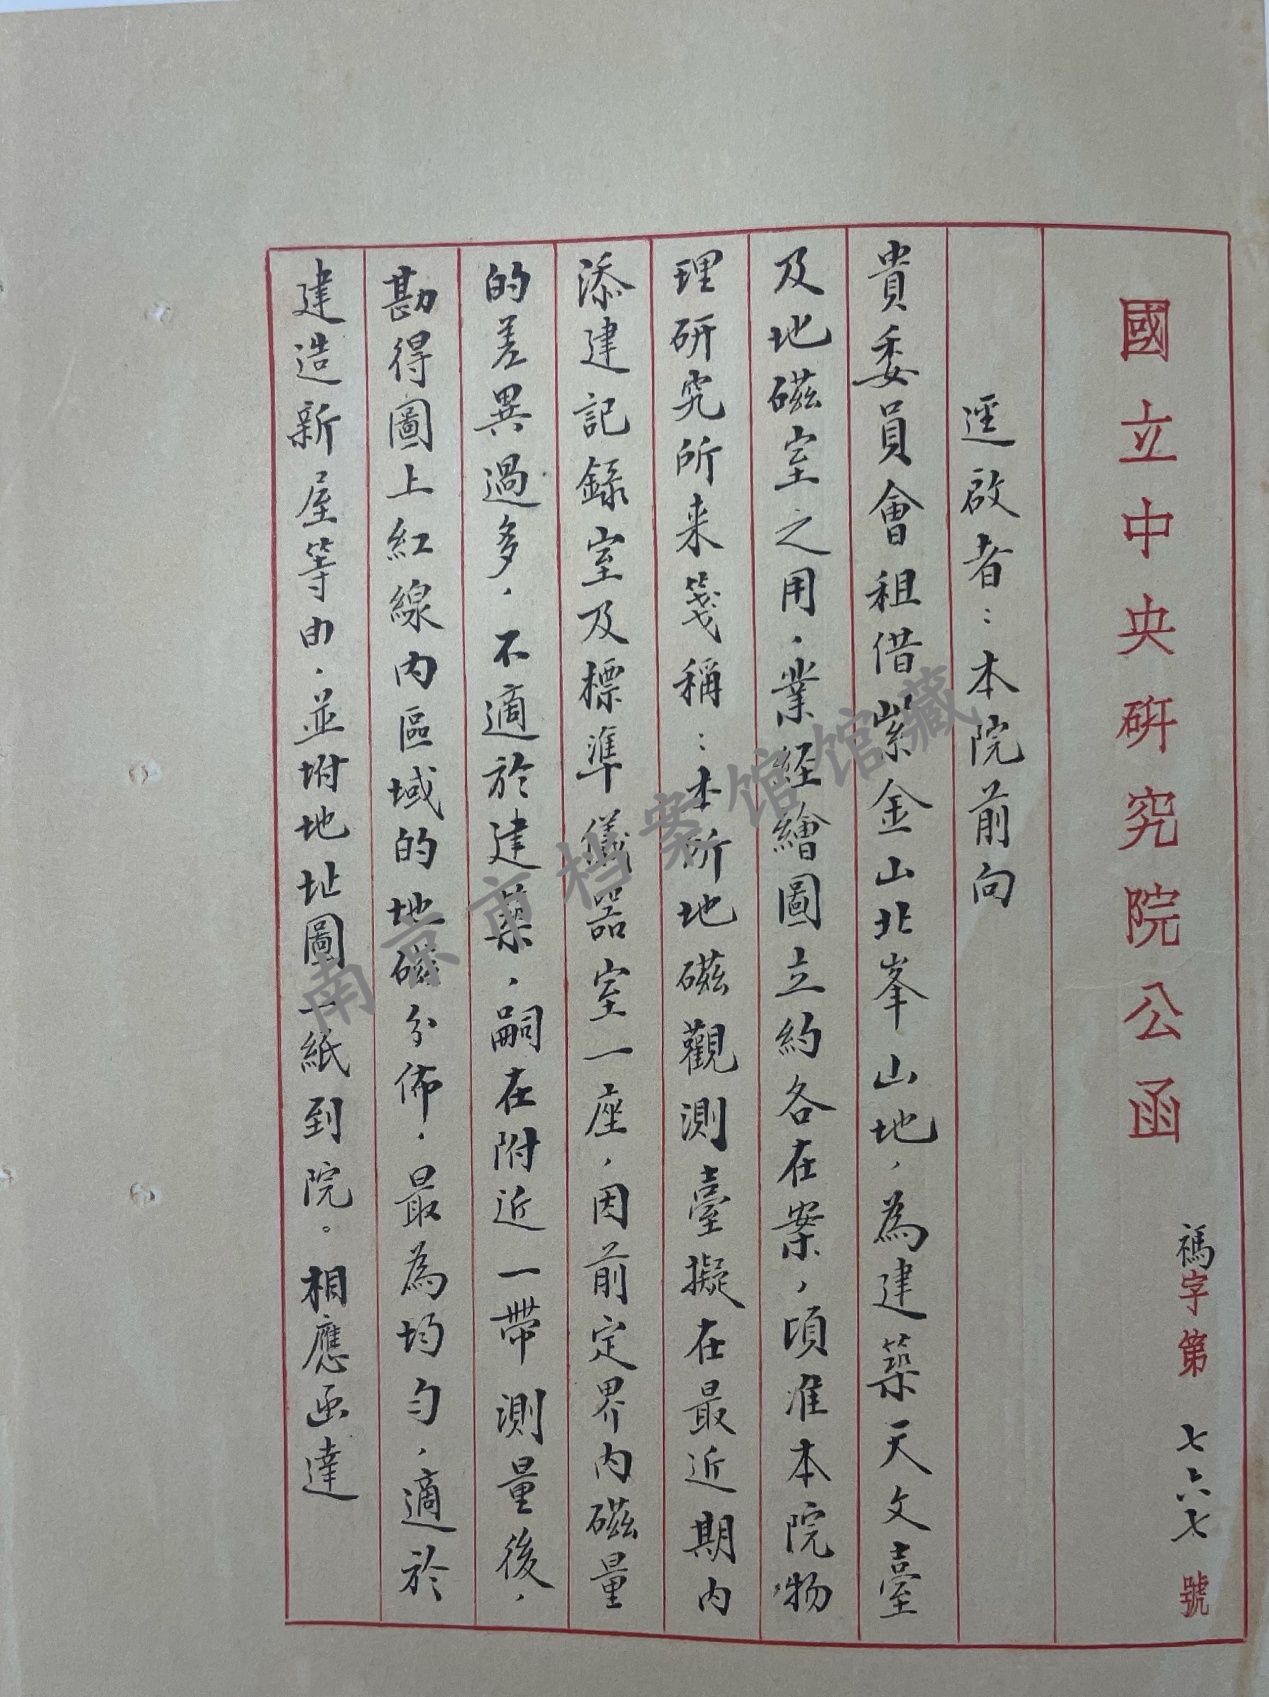 國立中央研究院公函
禡字第七六七號
逕啟者：本院前向
貴委員會租借紫金山北峯山地，為建築天文臺
及地磁室之用，業經繪圖立約各在案，頃准本院物
理研究所来箋稱：本所地磁觀測臺擬在最近期内
添建記錄室及標準儀器室一座，因前定界内磁量
的差異過多，不適於建築，嗣在附近一帶測量後，
勘得圖上紅線内區域的地磁分佈，最為均勻，適於
建造新屋等由，並坿地址圖一紙到院。相應函達
南京市档案馆馆藏